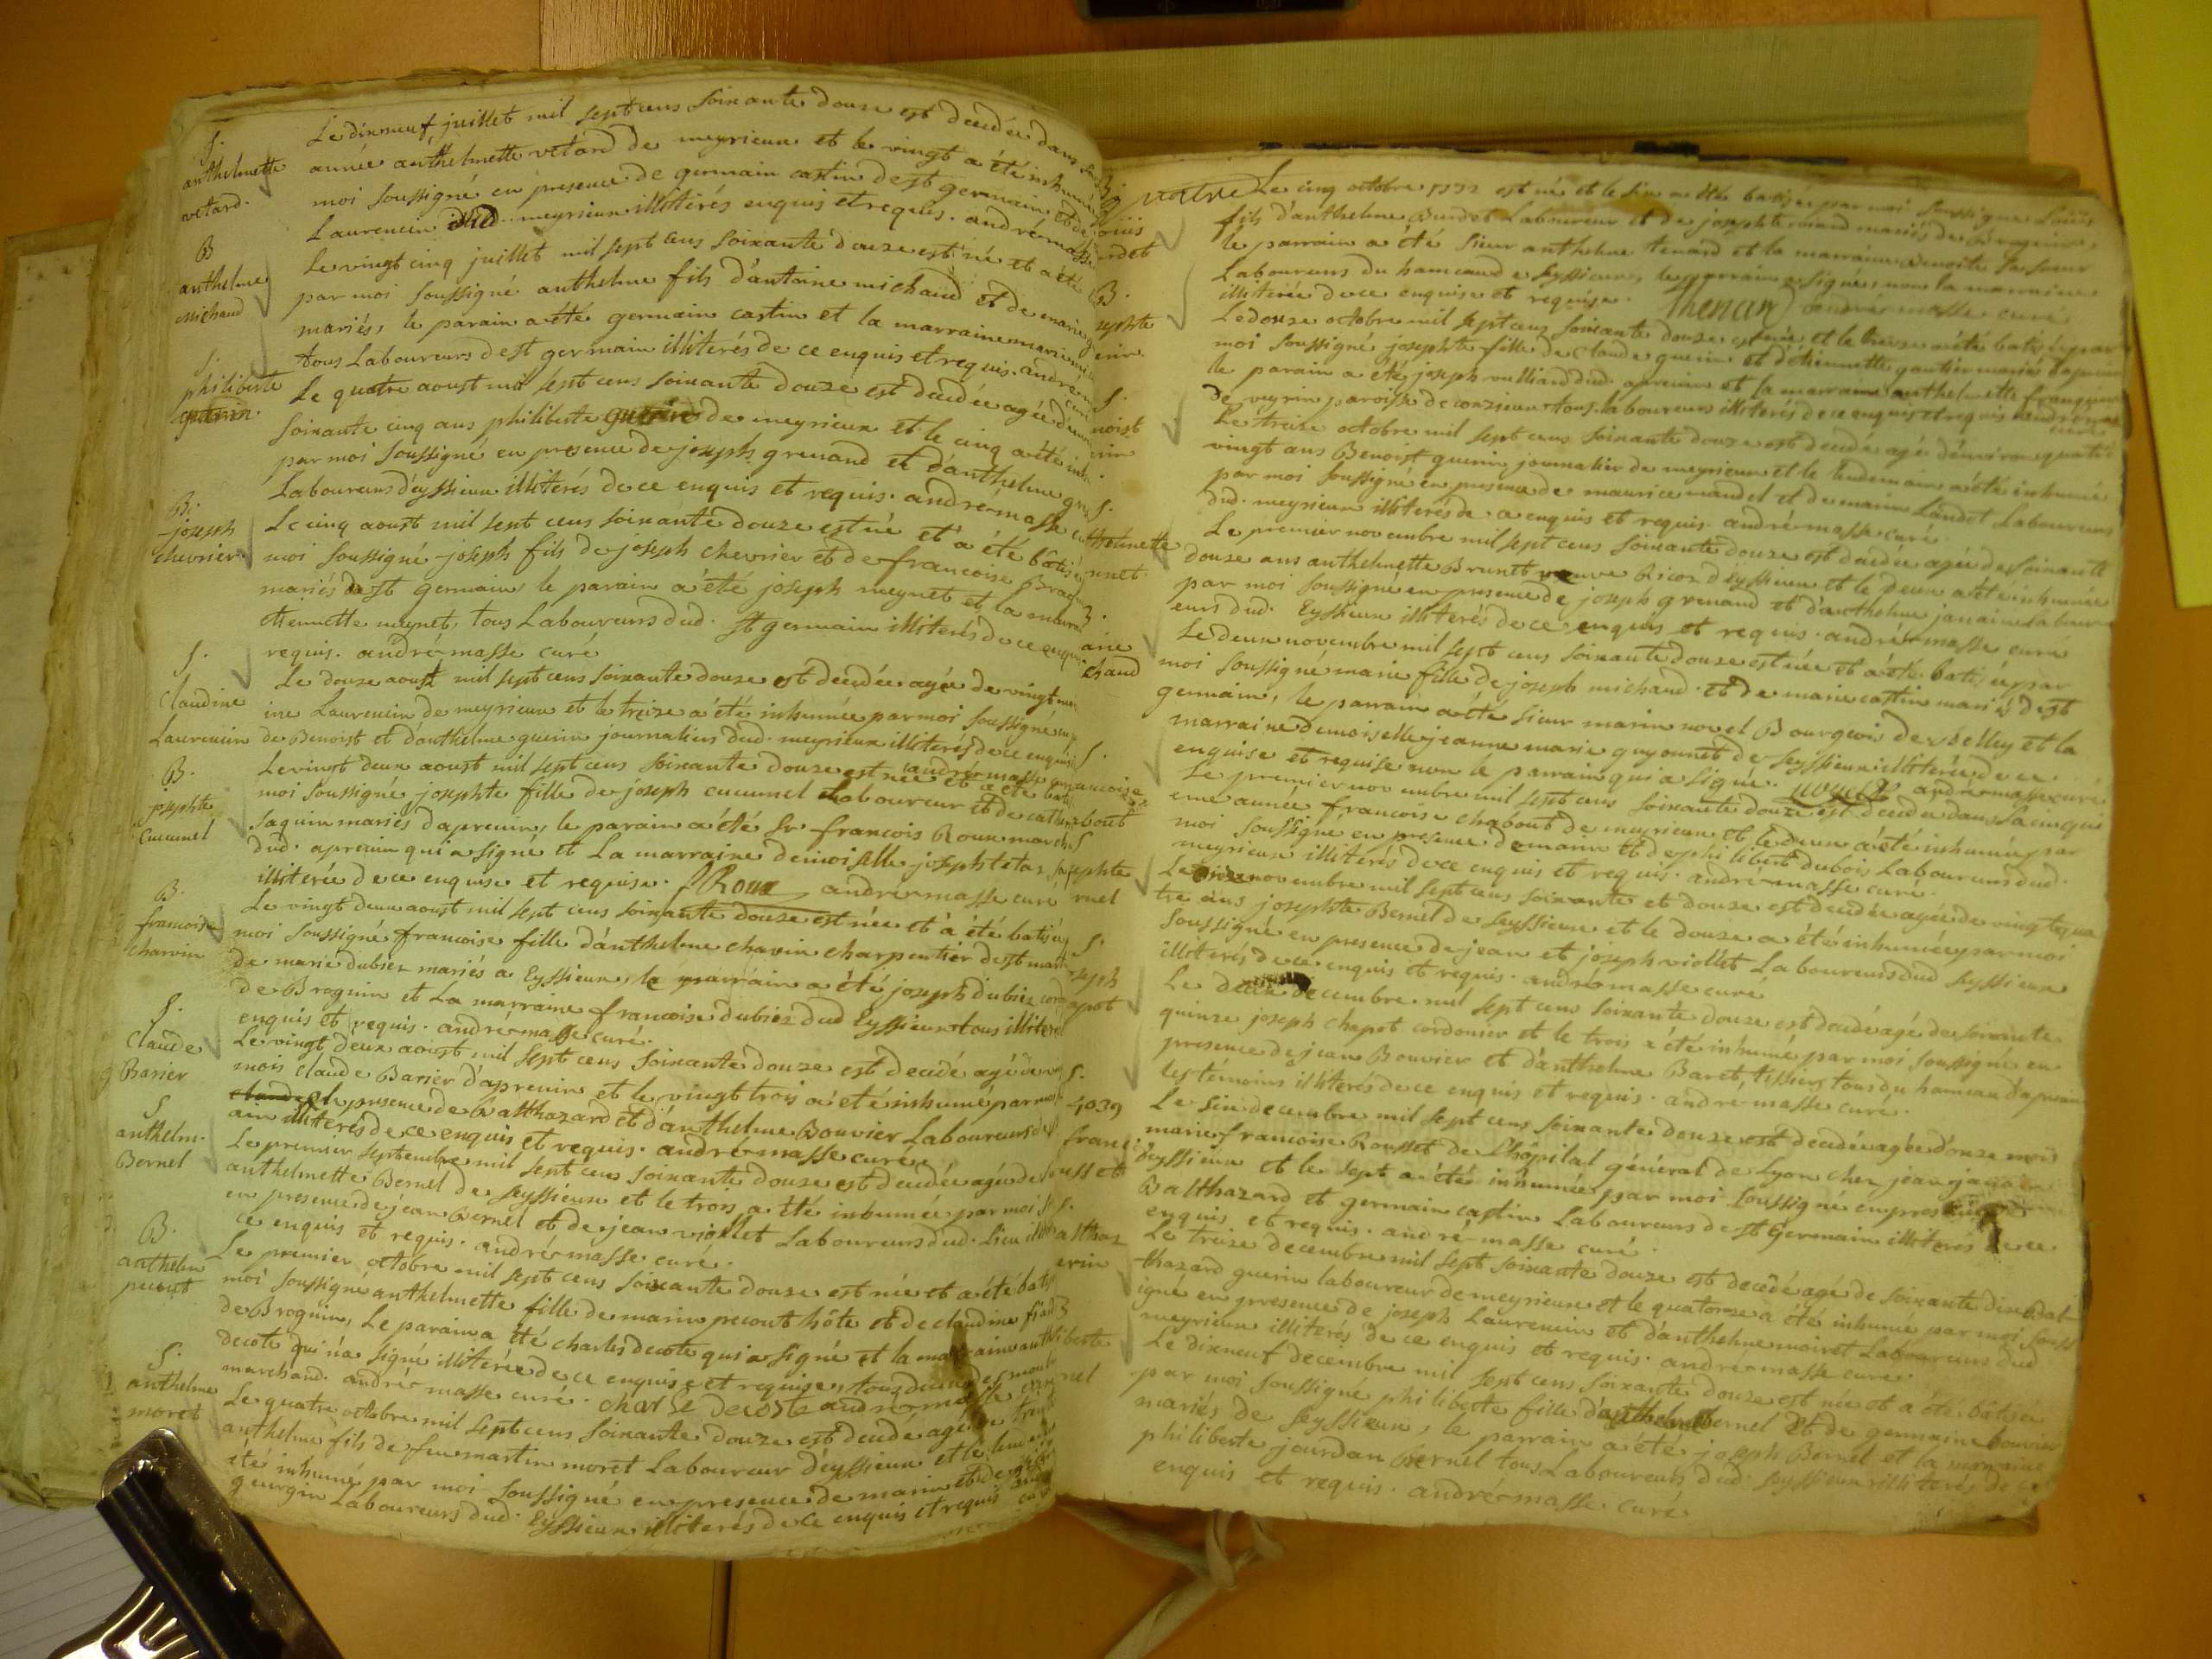 S.
anthelmette
vetard.
Le dixneuf juillet mil sept cens soixante douze est decedée dans
année anthelmette vetard de meyrieux et le vingt a été inhumée
moi soussigné en presence de germain castin de st germain et de
Laurencin dud. meyrieux illiterés enquis et requis. andré masse
B
anthelme
michaud
Le vingt cinq juillet mil sept cens soixante douze est né et a été
par moi soussigné anthelme fils d'antoine michaud et de marie
mariés, le parain a été germain castin et la marraine marie
tous Laboureurs de st germain illiterés de ce enquis et requis. andré
S.
philiberte
guerin.
Le quatre aoust mil sept cens soixante douze est decedée agée d'environ
soixante cinq ans philiberte guerin de meyrieux et le cinq a été
par moi soussigné en presence de joseph grenand et d'anthelme
Laboureurs d'eyssieux illiterés de ce enquis et requis. andré masse
B.
joseph
chevrier
Le cinq aoust mil sept cens soixante douze est né et a été batisé
moi soussigné joseph fils de joseph chevrier et de francoise
mariés de st germain, le parain a été joseph meynet et la marraine
etiennette meynet, tous Laboureurs dud. st germain illiterés de ce enquis
requis. andré masse curé
S.
Claudine
Laurencin
Le douze aoust mil sept cens soixante douze est decedée agée de vingt
ine Laurencin de meyrieux et le treize a été inhumée par moi soussigné
de Benoist et d'anthelme guerin journaliers dud. meyrieux illiterés de ce enquis
andré masse
B.
josephte
Cucunel
Le vingt deux aoust mil sept cens soixante douze est née et a été
moi soussigné josephte fille de joseph cucunel Laboureur et de
Saquin mariés d'aprenin, le parain a été Sr francois Roux
dud. aprenin qui a signé et La marraine demoiselle josephte
illiterée de ce enquise et requise. Roux andré masse curé
B.
francoise
charvin
Le vingt deux aoust mil sept cens soixante douze est née et a été batisée
moi soussigné francoise fille d'anthelme charvin charpentier de st
de marie dubiez mariés a Eyssieux, le parrain a été joseph dubiez
de Brognin et La marraine francoise dubiez dud Eyssieux tous illiterés
enquis et requis. andré masse curé.
S.
Claude
Barier
Le vingt deux aoust mil sept cens soixante douze est decedé agé de
mois claude Barier d'aprenin et le vingt trois a été inhumé par moi
presence de Balthazard et d'anthelme Bouvier Laboureurs
illiterés de ce enquis et requis. andré masse curé.
S
anthelm.
Bernel
Le premier septembre mil sept cens soixante douze est decedée agée de
anthelmette Bernel de seyssieux et le trois a été inhumée par moi
en presence de jean Bernel et de jean viollet Laboureurs dud. Lieu
ce enquis et requis. andré masse curé.
B.
anthelm
pecout
Le premier octobre mil sept cens soixante douze est née et a été
moi soussigné anthelmette fille de marin pecout hôte et de claudine
de Brognin, Le parain a été charles decote qui a signé et la marraine
decote qui n'a signé illiterée de ce enquise et requise, tous deux
marchand. andré masse curé. charle decoste andré masse
S.
anthelme
moret
Le quatre octobre mil sept cens soixante douze est decedé agé de
anthelme fils de feu martin moret Laboureur d'eyssieux et le
été inhumé par moi soussigné en presence de marin et de
guergin Laboureurs dud. Eyssieux illiterés de ce enquis et requis
Le cinq octobre 1772 est né et le six a été batisé par moi soussigné
fils d'anthelme Burdet Laboureur et de josephte mariés de Brognin,
le parrain a été sieur anthelme tenard et la marraine Benoite
Laboureurs du hameau de seyssieux, le parrain a signé, non la marraine
illiterée de ce enquise et requise. Thenard andré masse curé
josephte
Le douze octobre mil sept cens soixante douze est née et le treize a été batisée par
moi soussigné josephte fille de claude guerin et d'etiennette gautier mariés d'aprenin
le parain a été joseph vulliard dud. aprenin et la marraine anthelmette
de veyrin paroisse de conzieux tous laboureurs illiterés de ce enquis et requis andré masse
curé
S.
Le treize octobre mil sept cens soixante douze est decedé agé d'environ quatre
vingt ans Benoist guerin journalier de meyrieux et le lendemain a été inhumé
par moi soussigné en presence de maurice mandel et de marin Landot Laboureurs
dud. meyrieux illiterés de ce enquis et requis. andré masse curé.
S.
Le premier novembre mil sept cens soixante douze est decedée agée de soixante
douze ans anthelmette Brunet veuve d'eyssieux et le deux a été inhumée
par moi soussigné en presence de joseph grenand et d'anthelme janain labour
eurs dud. Eyssieux illiterés de ce enquis et requis. andré masse curé
Le deux novembre mil sept cens soixante douze est née et a été batisée par
moi soussigné marie fille de joseph michaud et de marie castin mariés de st
germain, le parrain a été sieur marin novel Bourgeois de Belley et la
marraine demoiselle jeanne marie guyonnet de seyssieux illiterée de ce
enquise et requise non le parrain qui a signé. novel andré masse curé
S.
Le premier novembre mil sept cens soixante douze est decedée dans sa cinqui
eme année francoise chabout de meyrieux et le deux a été inhumée par
moi soussigné en presence de marin et de philibert dubois Laboureurs dud.
meyrieux illiterés de ce enquis et requis. andré masse curé.
Le onze novembre mil sept cens soixante et douze est decedée agée de vingt qua
tre ans josephte Bernel de seyssieux et le douze a été inhumée par moi
soussigné en presence de jean et joseph viollet Laboureurs dud seyssieux
illiterés de ce enquis et requis. andré masse curé
S.
Le deux decembre mil sept cens soixante douze est decedé agé de soixante
quinze joseph chapot cordonier et le trois a été inhumé par moi soussigné en
presence de jean Bouvier et d'anthelme Baret, tissiers tous du hameau d'aprenin
les témoins illiterés de ce enquis et requis. andré masse curé.
S.
4039
Le six decembre mil sept cens soixante douze est decedée agée d'onze mois
marie francoise Rousset de L'hôpital général de Lyon chez jean
d'eyssieux et le sept a été inhumée par moi soussigné en presence
Balthazard et germain castin Laboureurs de st germain illiterés de ce
enquis et requis. andré masse curé.
S.
Le treize decembre mil sept soixante douze est decedé agé de soixante dix Bal
thazard guerin laboureur de meyrieux et le quatorze a été inhumé par moi souss
igné en presence de joseph Laurencin et d'anthelme moiret Laboureurs dud
meyrieux illiterés de ce enquis et requis. andré masse curé.
Le dixneuf decembre mil sept cens soixante douze est née et a été bâtisée
par moi soussigné philiberte fille d'anthelme Bernel et de germaine bouvier
mariés de seyssieux, le parrain a été joseph Bernel et la marraine
philiberte jourdan Bernel tous Laboureurs dud. seyssieux illiterés de ce
enquis et requis. andré masse curé